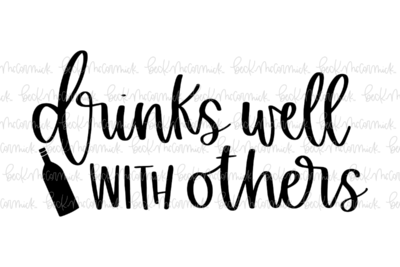 drinks well
WITH others